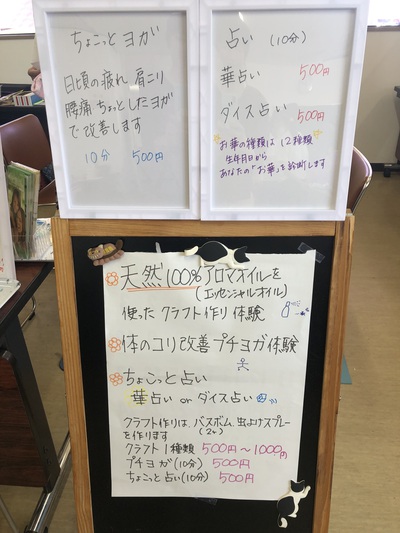 ちょこっとヨガ
日頃の疲れ 肩こり
腰痛 ちょっとしたヨガ
で改善します
10分 500円
占い (10分)
華占い 500円
ダイス占い 500円
お華の種類は12種類
生年月日から
あなたの「お華」を診断します
天然100%アロマオイルを
(エッセンシャルオイル)
使ったクラフト作り体験
体のコリ改善プチヨガ体験
ちょこっと占い
華占い or ダイス占い
クラフト作りは、バスボム、虫よけスプレー
を作ります
クラフト1種類 500円〜1000円
プチヨガ(10分) 500円
ちょこっと占い(10分) 500円